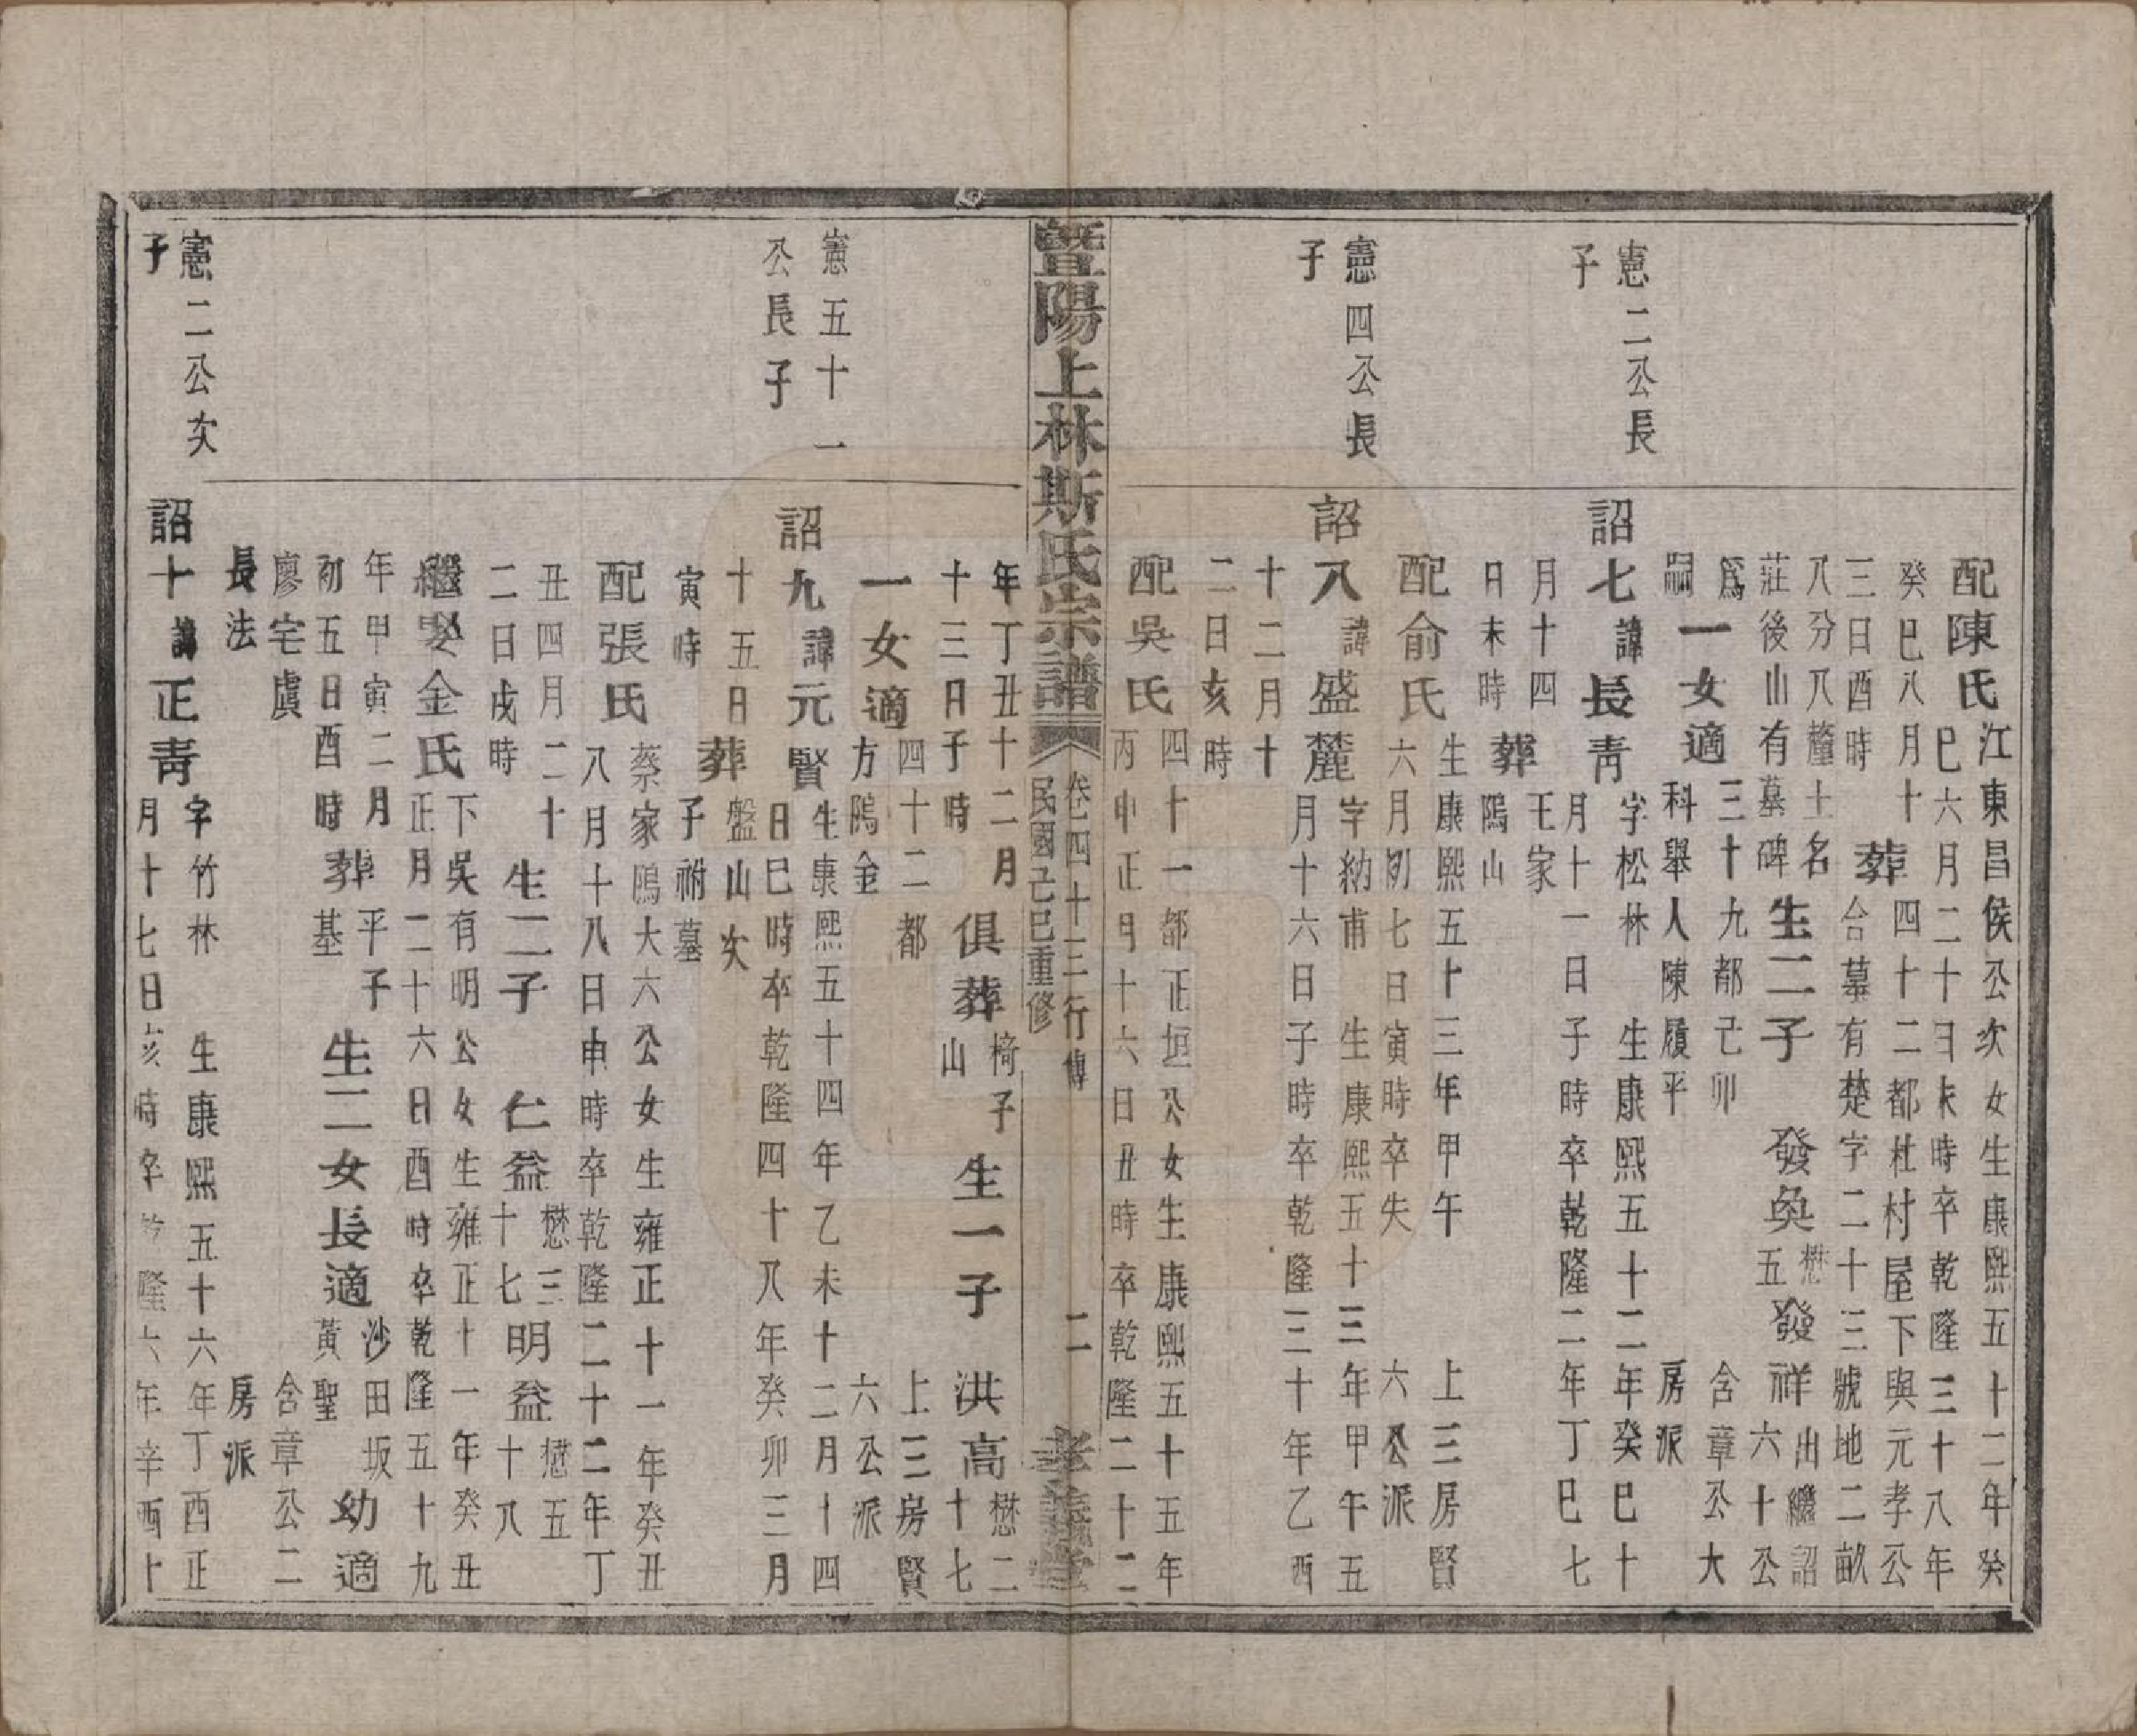 配陳氏江東昌侯公次女生康熙五十二年癸
巳六月二十日未時卒乾隆三十八年
癸巳八月十
三日酉時葬四十二都杜村屋下與元孝公
合墓有楚字二十三號地二畝
八分八釐土名
莊後山有墓碑生二子 發奐懋五發祥出繼詔
六十公
爲
嗣一女適三十九都己卯
科舉人陳履平含章公大
房派
憲二公長
子
詔七諱長靑字松林 生康熙五十二年癸巳十
月十一日子時卒乾隆二年丁巳七
月十四
日未時葬王家
塢山
配俞氏生康熙五十三年甲午
六月初七日寅時卒失上三房賢
六公派
憲四公長
子
詔八諱盛麓字納甫 生康熙五十三年甲午五
月十六日子時卒乾隆三十年乙酉
十二月十
二日亥時
配吳氏四十一都正垣公女生康熙五十五年
丙申正月十六日丑時卒乾隆二十二
暨陽上林斯氏宗譜 卷四十三行傳 民國己巳重修 二 孝義堂
年丁丑十二月
十三日子時俱葬椅子
山生一子 洪高懋二
十七
一女適四十二都
方塢金上三房賢
六公派
憲五十一
公長子
詔九諱元賢生康熙五十四年乙未十二月十四
日巳時卒乾隆四十八年癸卯三月
十五日
寅時葬盤山次
子祔墓
配張氏蔡家塢大六公女生雍正十一年癸丑
八月十八日申時卒乾隆二十二年丁
丑四月二十
二日戌時生二子 仁益懋三
十七明益懋五
十八
繼娶金氏下吳有明公女生雍正十一年癸丑
正月二十六日酉時卒乾隆五十九
年甲寅二月
初五日酉時葬平子
基生二女長適沙田坂
黃聖幼適
廖宅虞
長法含章公二
房派
憲二公次
子
詔十諱正靑字竹林 生康熙五十六年丁酉正
月十七日亥時卒乾隆六年辛酉十